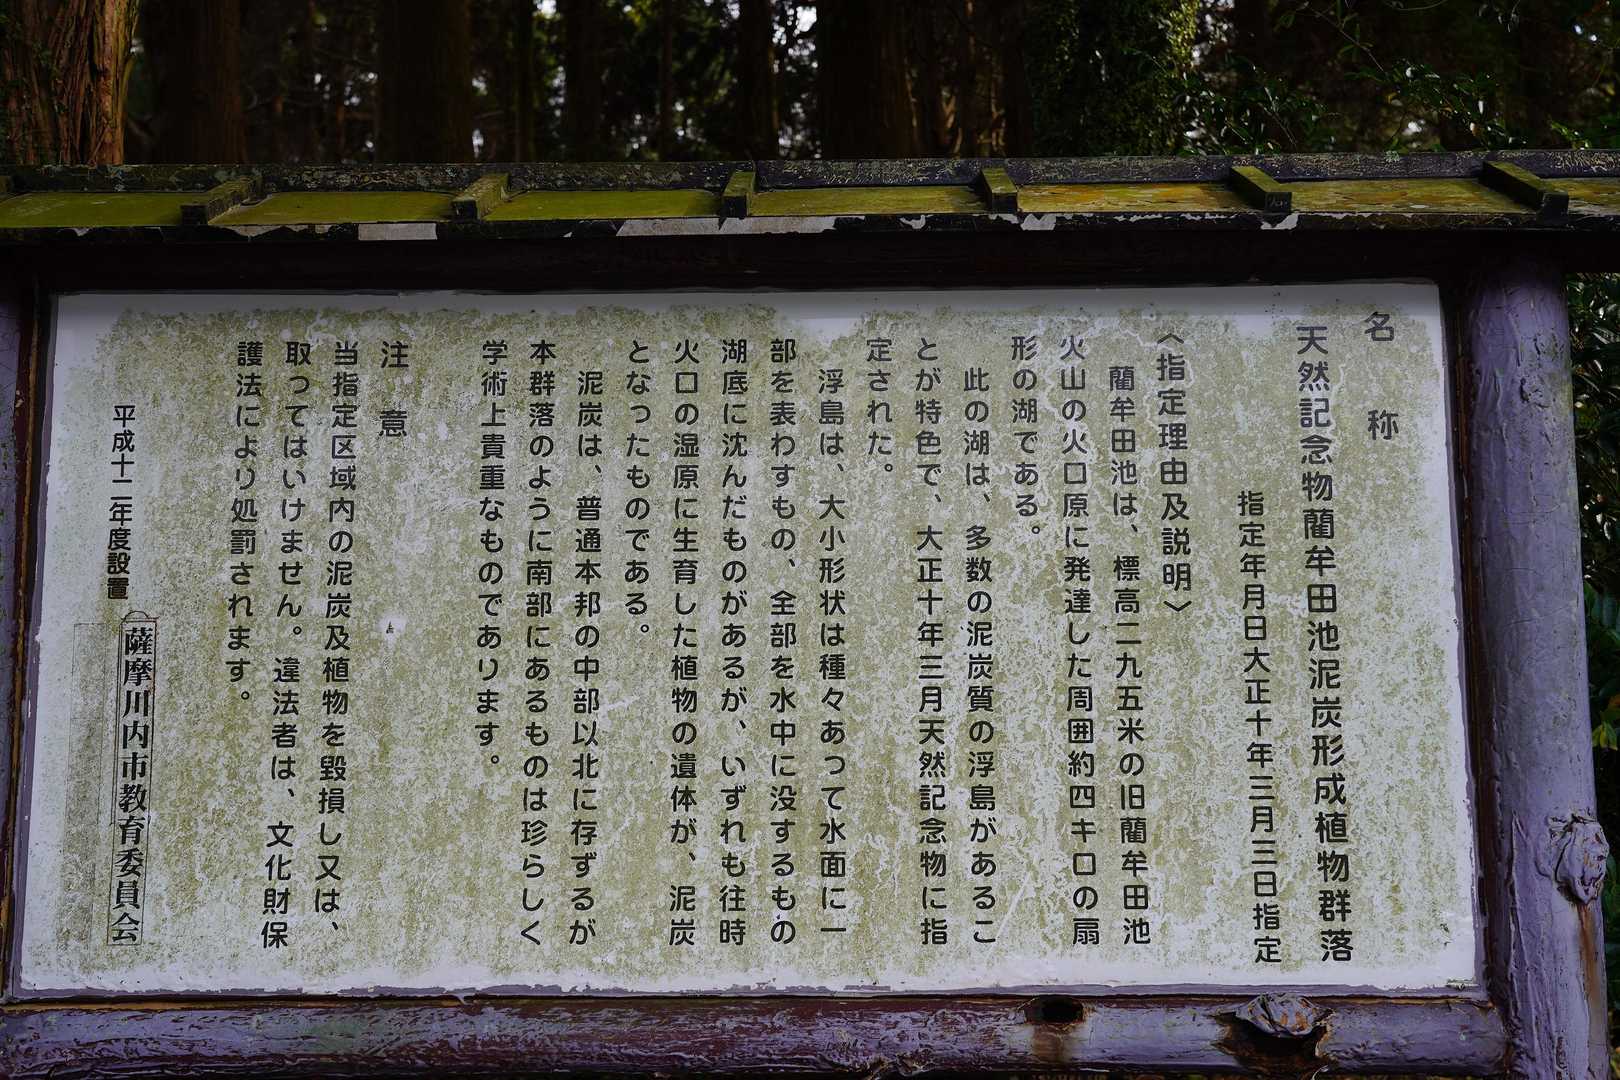 名称
天然記念物藺牟田池泥炭形成植物群落
指定年月日大正十年三月三日指定
〈指定理由及説明〉
藺牟田池は、標高二九五米の旧藺牟田池
火山の火口原に発達した周囲約四キロの扇
形の湖である。
此の湖は、多数の泥炭質の浮島があるこ
とが特色で、大正十年三月天然記念物に指
定された。
浮島は、大小形状は種々あって水面に一
部を表わすもの、全部を水中に没するもの
湖底に沈んだものがあるが、いずれも往時
火口の湿原に生育した植物の遺体が、泥炭
となったものである。
泥炭は、普通本邦の中部以北に存ずるが
本群落のように南部にあるものは珍らしく
学術上貴重なものであります。
注意
当指定区域内の泥炭及植物を毀損し又は、
取ってはいけません。違法者は、文化財保
護法により処罰されます。
平成十二年度設置
薩摩川内市教育委員会